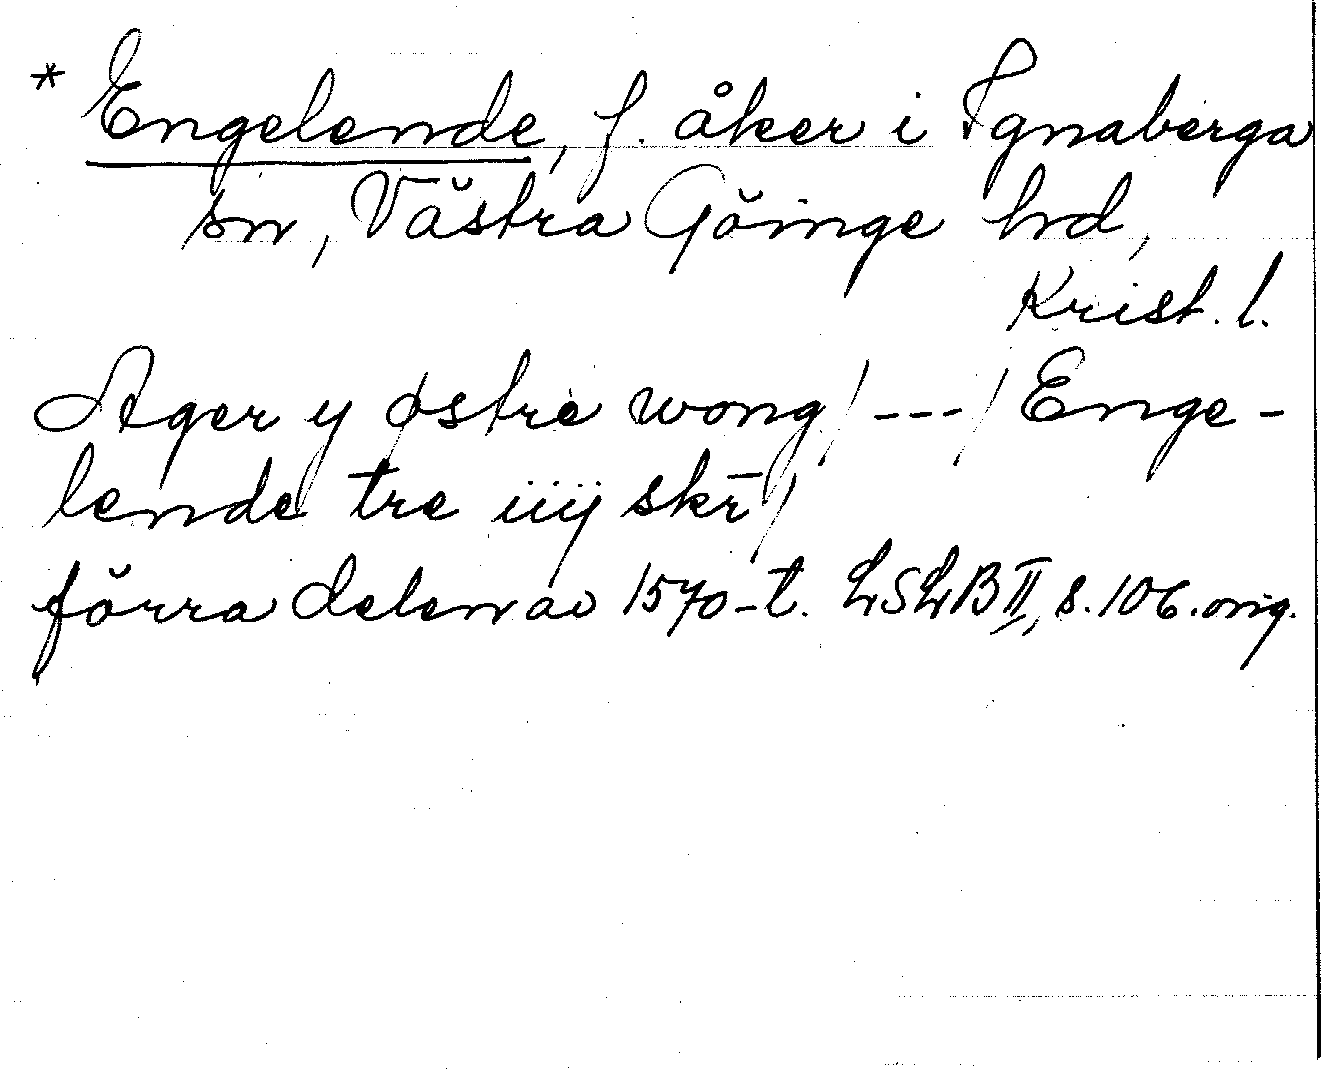 * Engelende, f. åker i Ignaberga
sn, Västra Göinge hd,
Krist. l.
Ager y østre wong / --- / Enge-
lende tre iiij skr̄ /
förra delen av 1570-t. LSLB II, s. 106. orig.